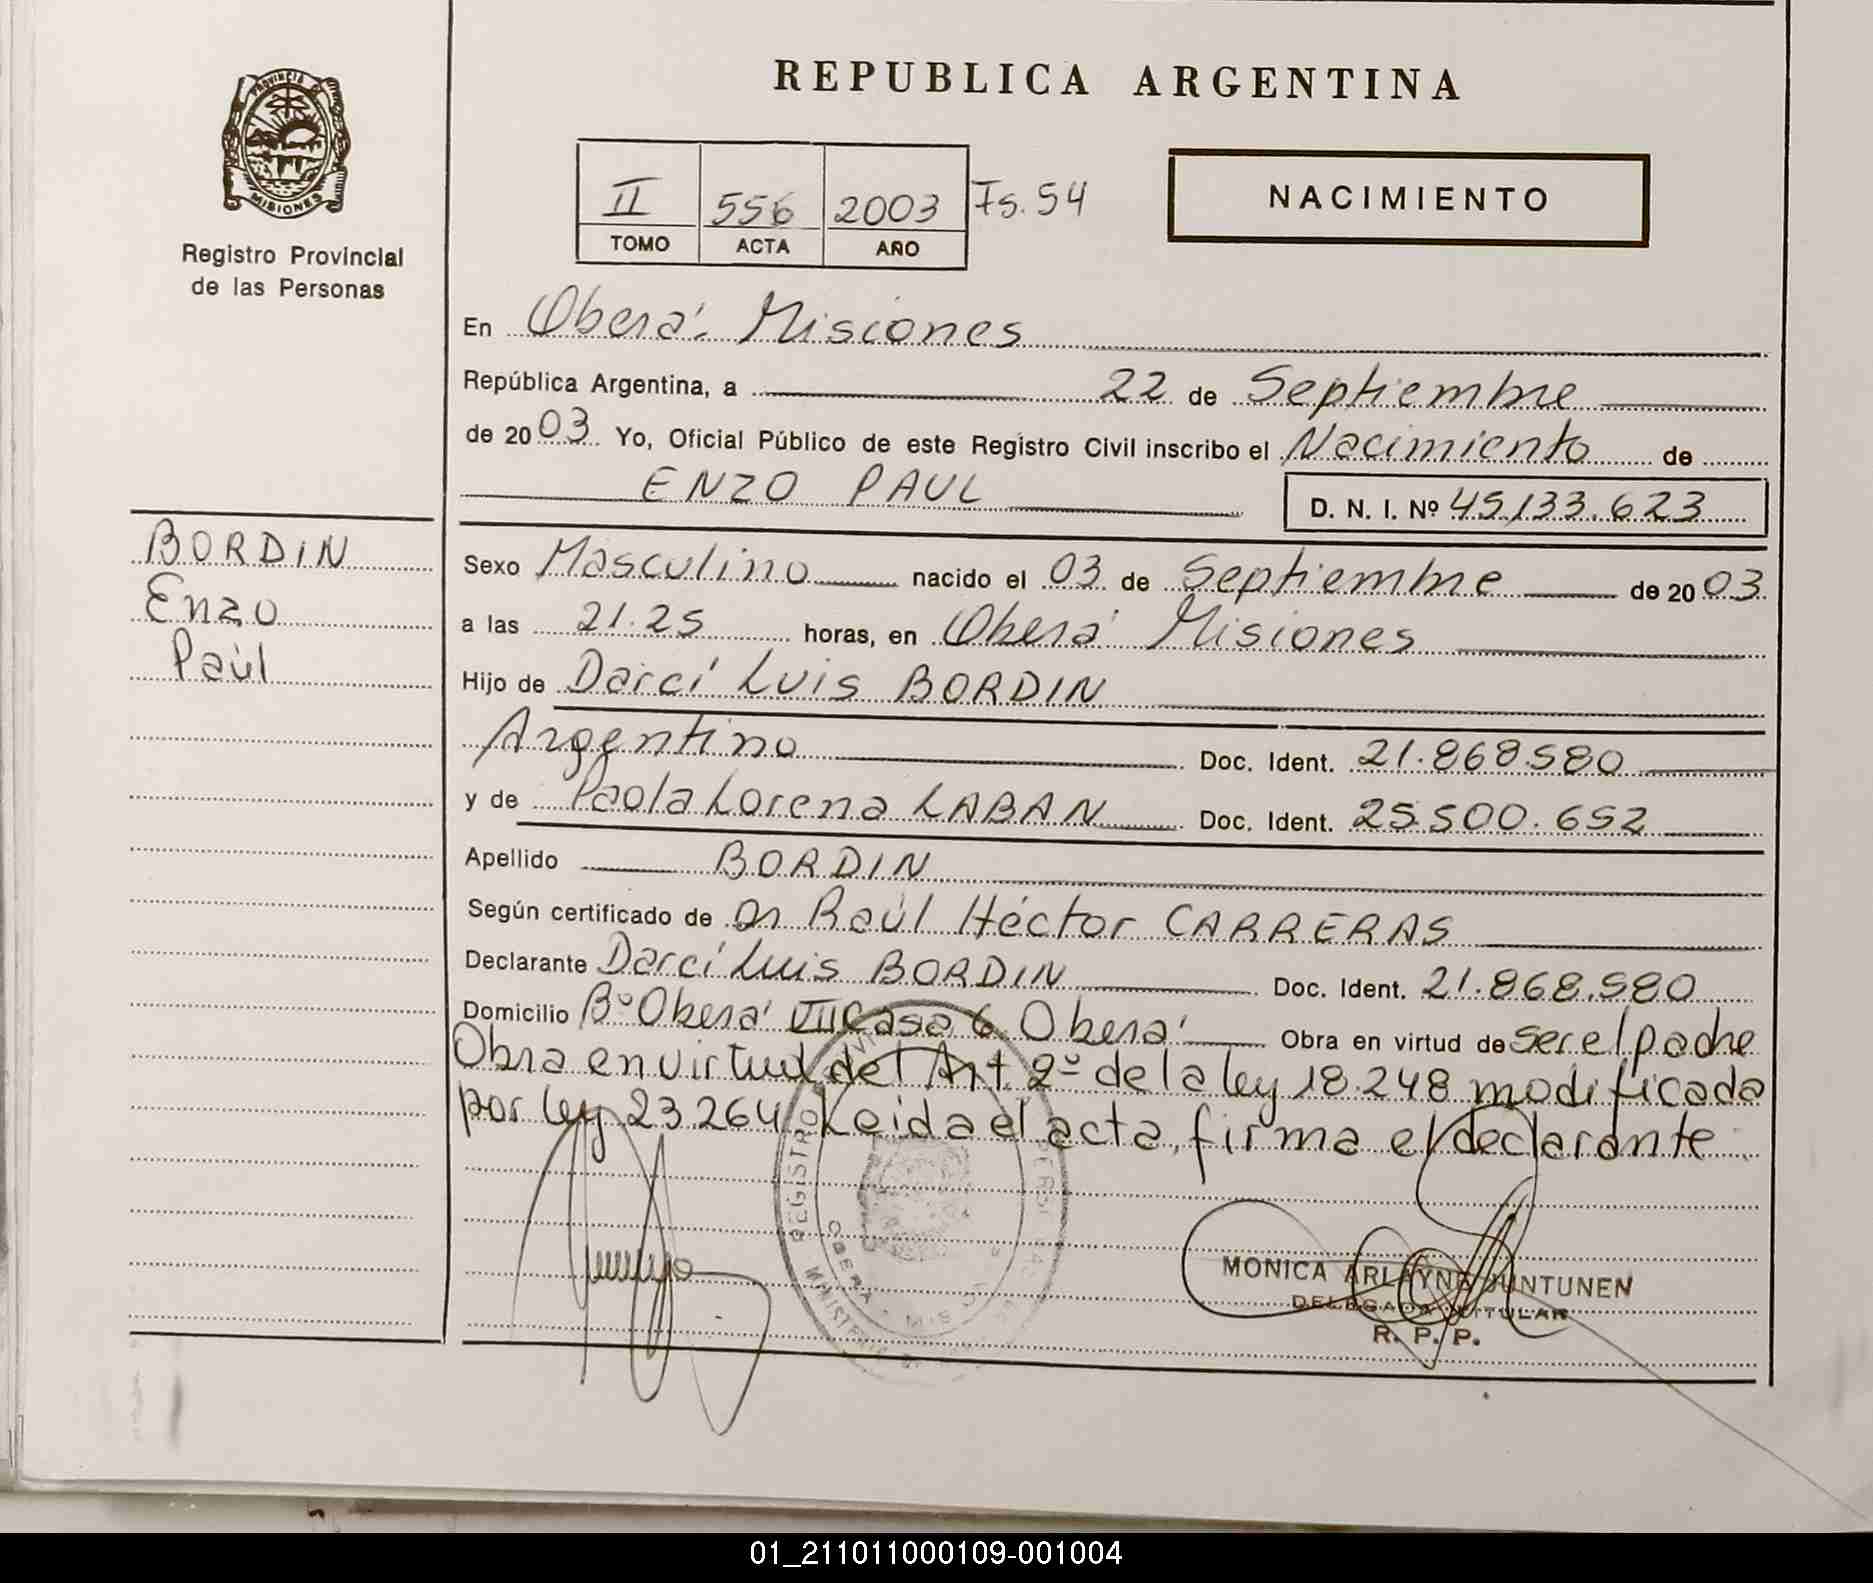 REPUBLICA ARGENTINA
PROVINCIA DE
MISIONES
Registro Provincial
de las Personas
II 556 2003 Fs. 54
TOMO ACTA AÑO
NACIMIENTO
En Oberá - Misiones
República Argentina, a 22 de Septiembre
de 2003 Yo, Oficial Público de este Registro Civil inscribo el Nacimiento de
ENZO PAUL
D. N. I. Nº 45.133.623
BORDIN
Enzo
Paúl
Sexo Masculino nacido el 03 de Septiembre de 2003
a las 21.25 horas, en Oberá Misiones
Hijo de Darcí Luis BORDIN
Argentino Doc. Ident. 21.868.580
y de Paola Lorena LABAN Doc. Ident. 25.500.652
Apellido BORDIN
Según certificado de Dr Raúl Héctor CARRERAS
Declarante Darcí Luis BORDIN Doc. Ident. 21.868.580
Domicilio Bº Oberá VII Casa 6 Oberá Obra en virtud de ser el padre
Obra en virtud del Art. 2º de la ley 18.248 modificada
por ley 23.264. Leida el acta, firma el declarante.
REGISTRO
OBERA - MIS
MINISTERIO DE
MONICA ARLAYNE JUNTUNEN
DELEGADA TITULAR
R. P. P.
01_211011000109-001004